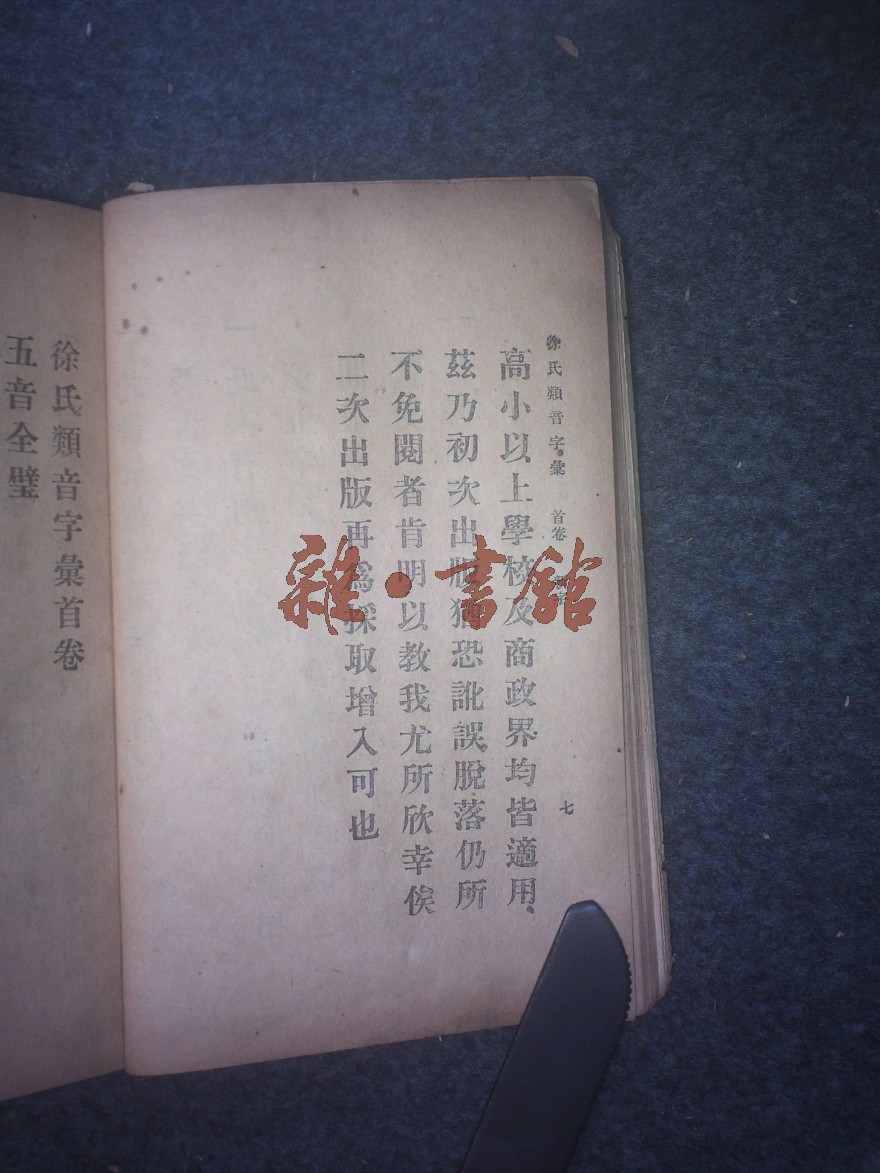 徐氏類音字彙　首卷
七
高小以上學校及商政界均皆適用、
茲乃初次出版猶恐訛誤脫落仍所
不免閱者肯明以教我尤所欣幸俟
二次出版再為採取增入可也
徐氏類音字彙首卷
五音全璧
雜·書館